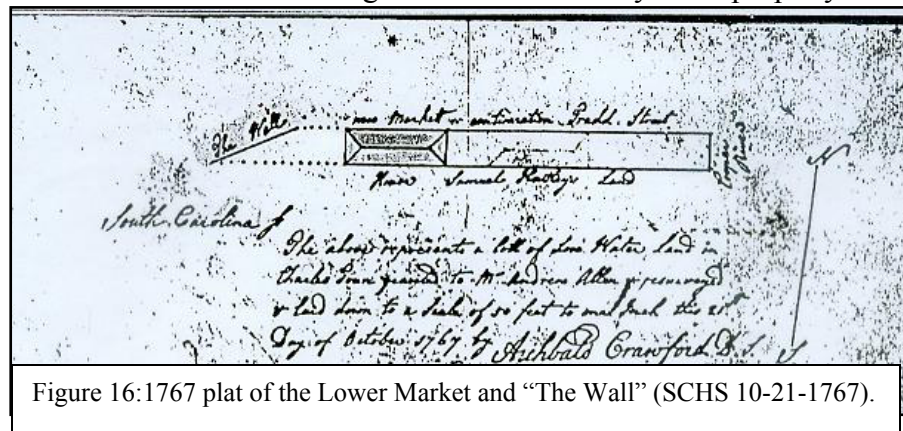 The Wall
new Market & continuation Tradd Street
Cooper River
House Samuel Land
N
South Carolina
The above represents a lott of Low Water Land in
Charles Town granted to Mr Andrew Allen & resurveyed
& laid down to a Scale of 50 feet to one Inch this 21st
Day of October 1767 by Archbald Crawford D. S.
S
Figure 16:1767 plat of the Lower Market and “The Wall” (SCHS 10-21-1767).